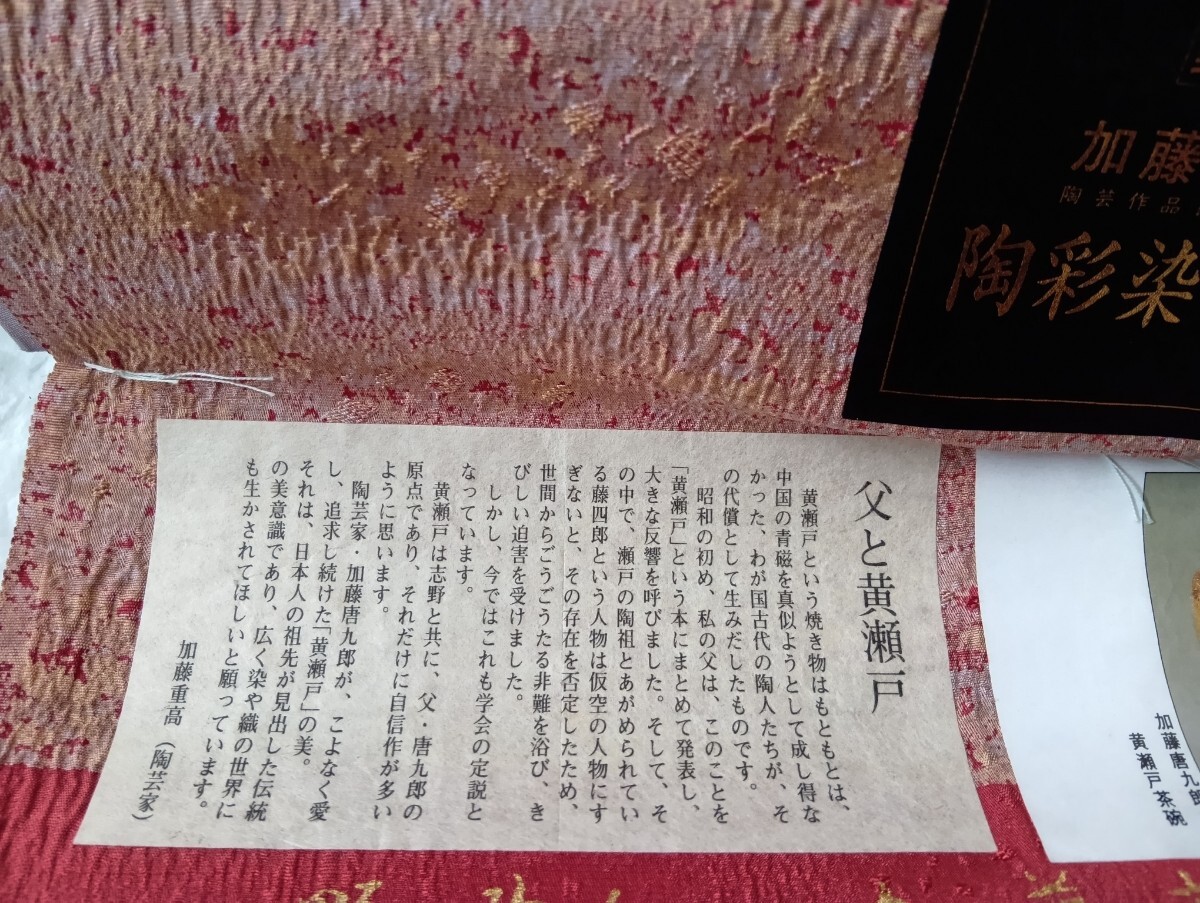 加藤
陶芸作品
陶彩染
父と黄瀬戸
黄瀬戸という焼き物はもともとは、
中国の青磁を真似ようとして成し得な
かった、わが国古代の陶人たちが、そ
の代償として生みだしたものです。
昭和の初め、私の父は、このことを
「黄瀬戸」という本にまとめて発表し、
大きな反響を呼びました。そして、そ
の中で、瀬戸の陶祖とあがめられてい
る藤四郎という人物は仮空の人物にす
ぎないと、その存在を否定したため、
世間からごうごうたる非難を浴び、き
びしい迫害を受けました。
しかし、今ではこれも学会の定説と
なっています。
黄瀬戸は志野と共に、父・唐九郎の
原点であり、それだけに自信作が多い
ように思います。
陶芸家・加藤唐九郎が、こよなく愛
し、追求し続けた「黄瀬戸」の美。
それは、日本人の祖先が見出した伝統
の美意識であり、広く染や織の世界に
も生かされてほしいと願っています。
加藤重高（陶芸家）
加藤唐九郎
黄瀬戸茶碗